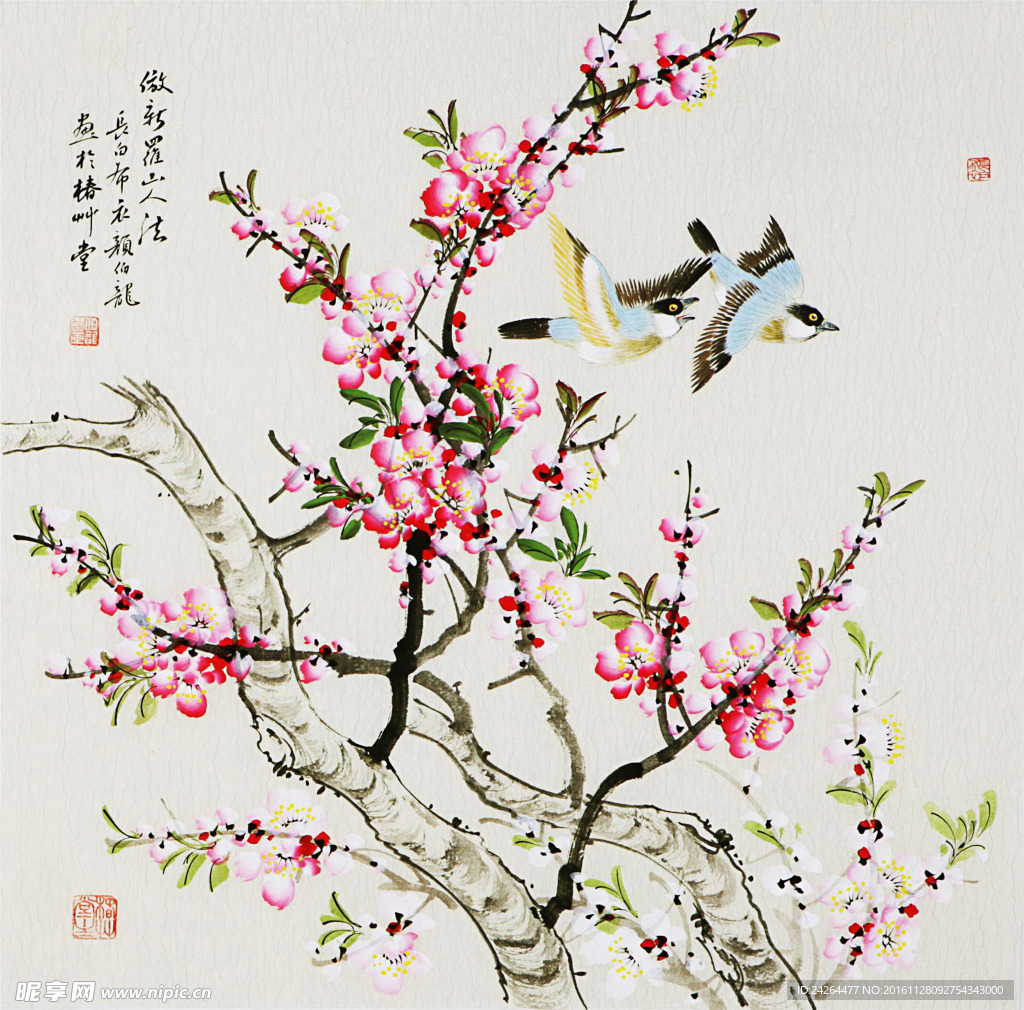 倣新羅山人法
長白布衣顏伯龍
畫於椿艸堂
昵享网 www.nipic.cn
ID:24264477 NO:20161128092754343000